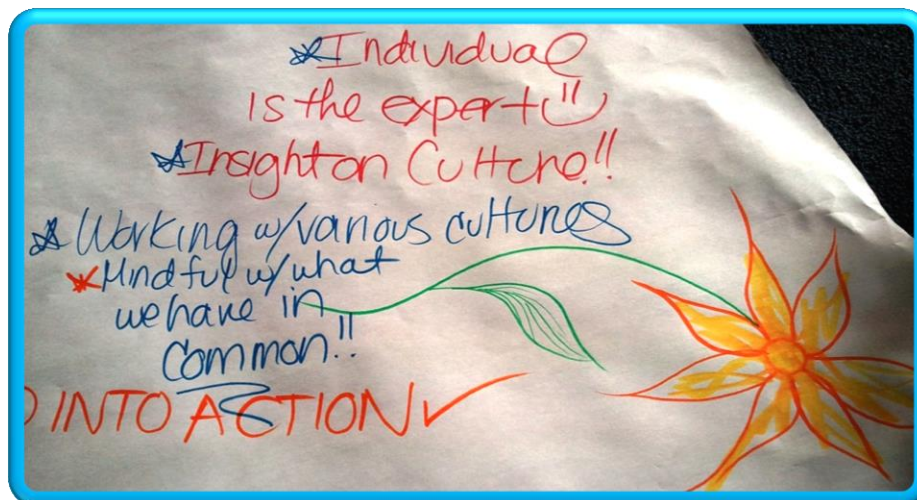 Individual
is the expert
Insight on Culture!!
Working w/various cultures
Mindful w/what
we have in
common!!
INTO ACTION